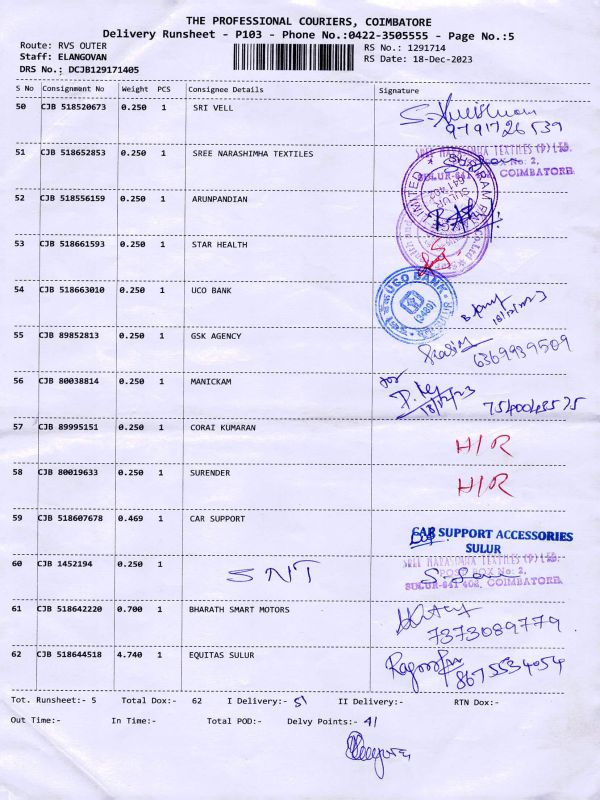 THE PROFESSIONAL COURIERS, COIMBATORE
Delivery Runsheet - P103 - Phone No.:0422-3505555 - Page No.:5
Route: RVS OUTER RS No.: 1291714
Staff: ELANGOVAN RS Date: 18-Dec-2023
DRS No.: DCJB129171405
S No Consignment No Weight PCS Consignee Details Signature
50 CJB 518520673 0.250 1 SRI VELL
9791726539
51 CJB 518652853 0.250 1 SREE NARASHIMHA TEXTILES
COIMBATORE
52 CJB 518556159 0.250 1 ARUNPANDIAN
53 CJB 518661593 0.250 1 STAR HEALTH
54 CJB 518663010 0.250 1 UCO BANK
UCO BANK
55 CJB 89852813 0.250 1 GSK AGENCY
6369939509
56 CJB 80038814 0.250 1 MANICKAM
18/12/23
57 CJB 89995151 0.250 1 CORAI KUMARAN H/R
58 CJB 80019633 0.250 1 SURENDER H/R
59 CJB 518607678 0.469 1 CAR SUPPORT
CAR SUPPORT ACCESSORIES
SULUR
60 CJB 1452194 0.250 1 SNT
SULUR-641 402, COIMBATORE
61 CJB 518642220 0.700 1 BHARATH SMART MOTORS
7373089779
62 CJB 518644518 4.740 1 EQUITAS SULUR
8675534054
Tot. Runsheet:- 5 Total Dox:- 62 I Delivery:- 51 II Delivery:- RTN Dox:-
Out Time:- In Time:- Total POD:- Delvy Points:- 41